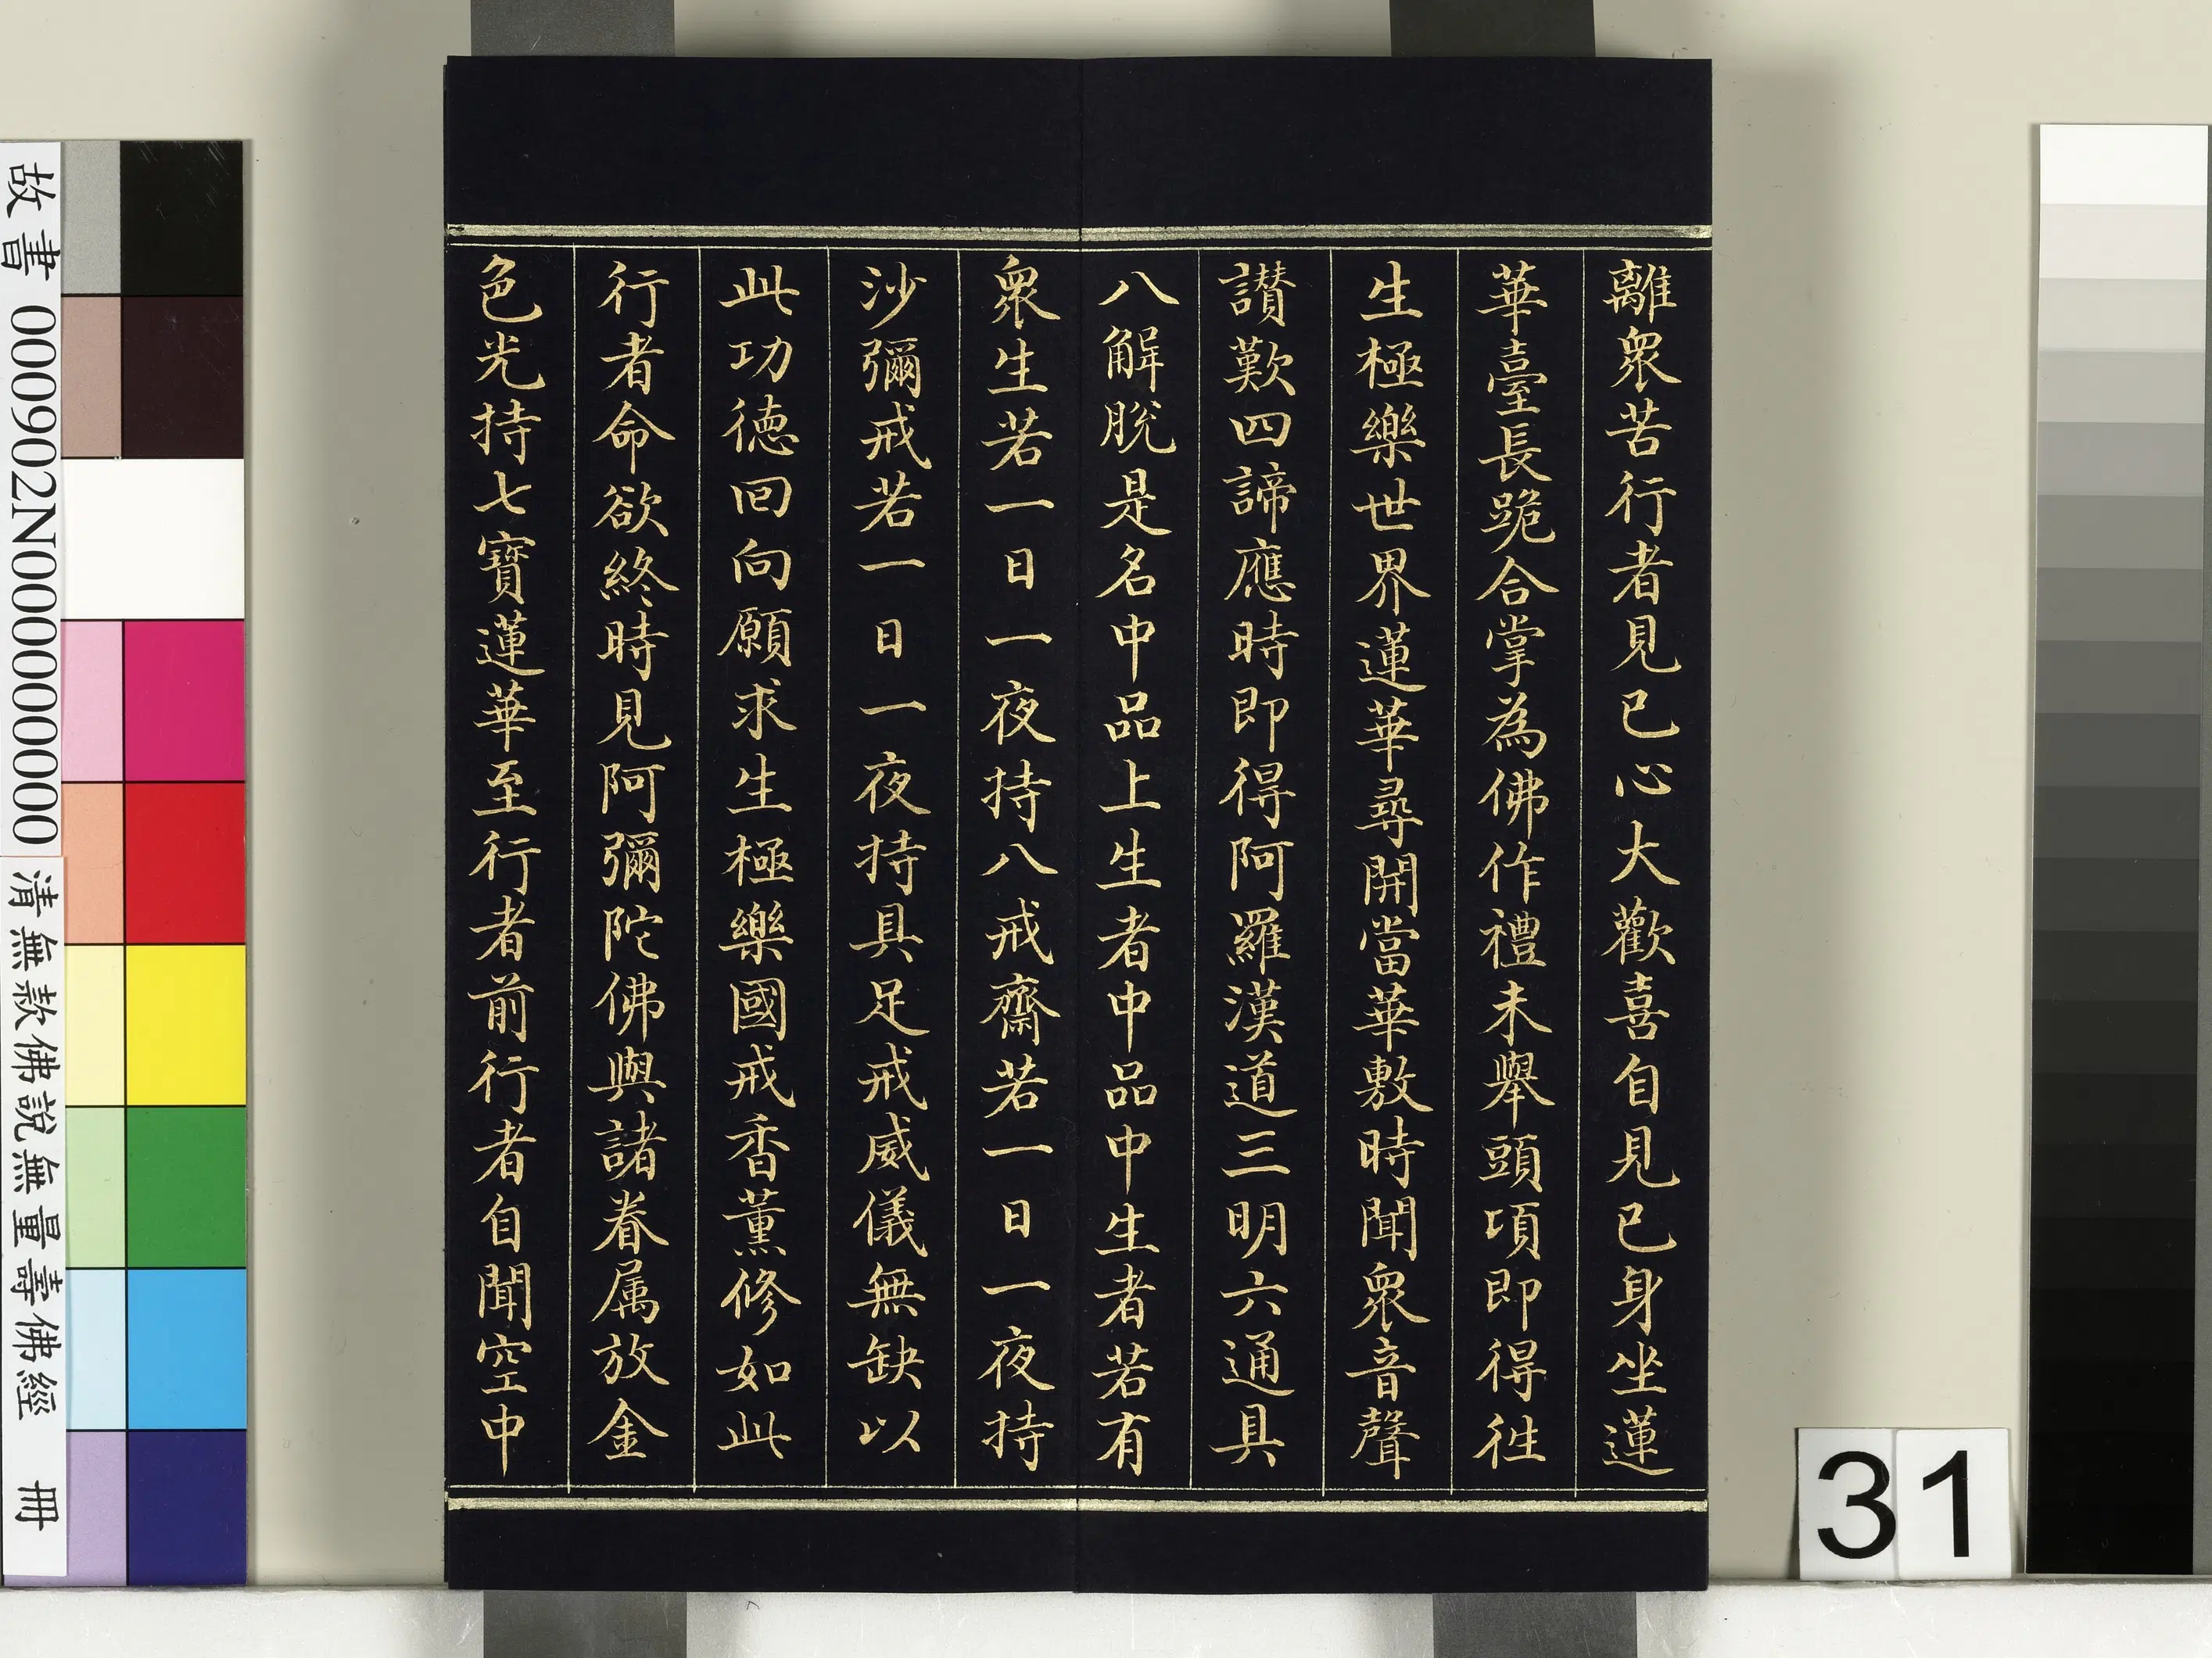 離衆苦行者見已心大歡喜自見已身坐蓮
華臺長跪合掌為佛作禮未舉頭項即得徃
生極樂世界蓮華尋開當華敷時聞衆音聲
讃歎四諦應時即得阿羅漢道三明六通具
八解脫是名中品上生者中品中生者若有
衆生若一日一夜持八戒齋若一日一夜持
沙彌戒若一日一夜持具足戒威儀無缺以
此功德回向願求生極樂國戒香薰修如此
行者命欲終時見阿彌陀佛與諸眷属放金
色光持七寶蓮華至行者前行者自聞空中
故書 000902N000000000
清無款佛說無量壽佛經 冊
31